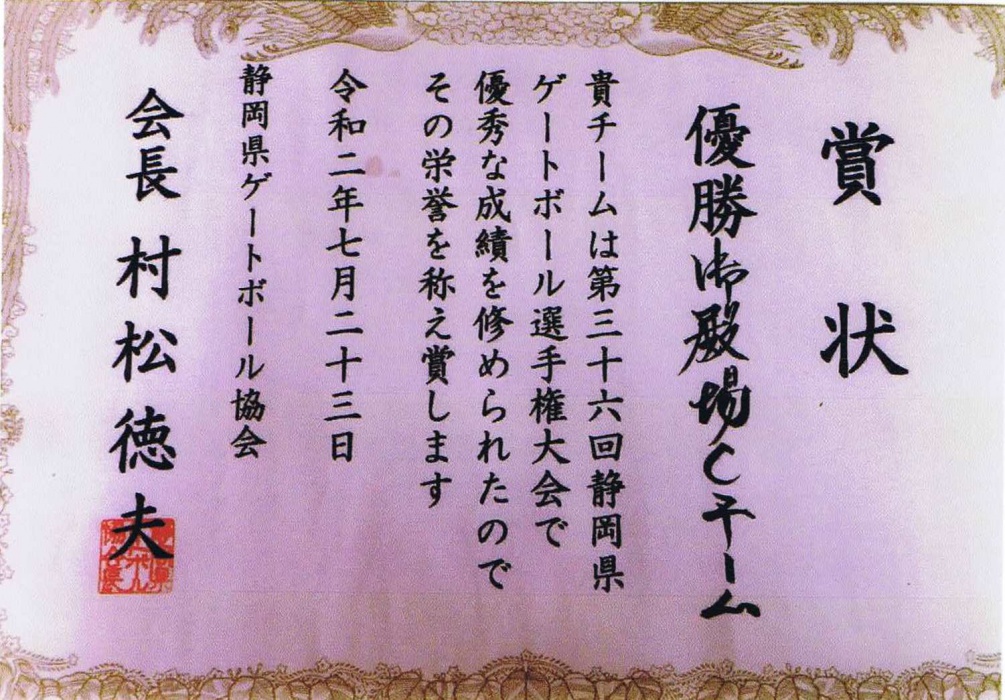 賞状
優勝御殿場Cチーム
貴チームは第三十六回静岡県
ゲートボール選手権大会で
優秀な成績を修められたので
その栄誉を称え賞します
令和二年七月二十三日
静岡県ゲートボール協会
会長 村松徳夫